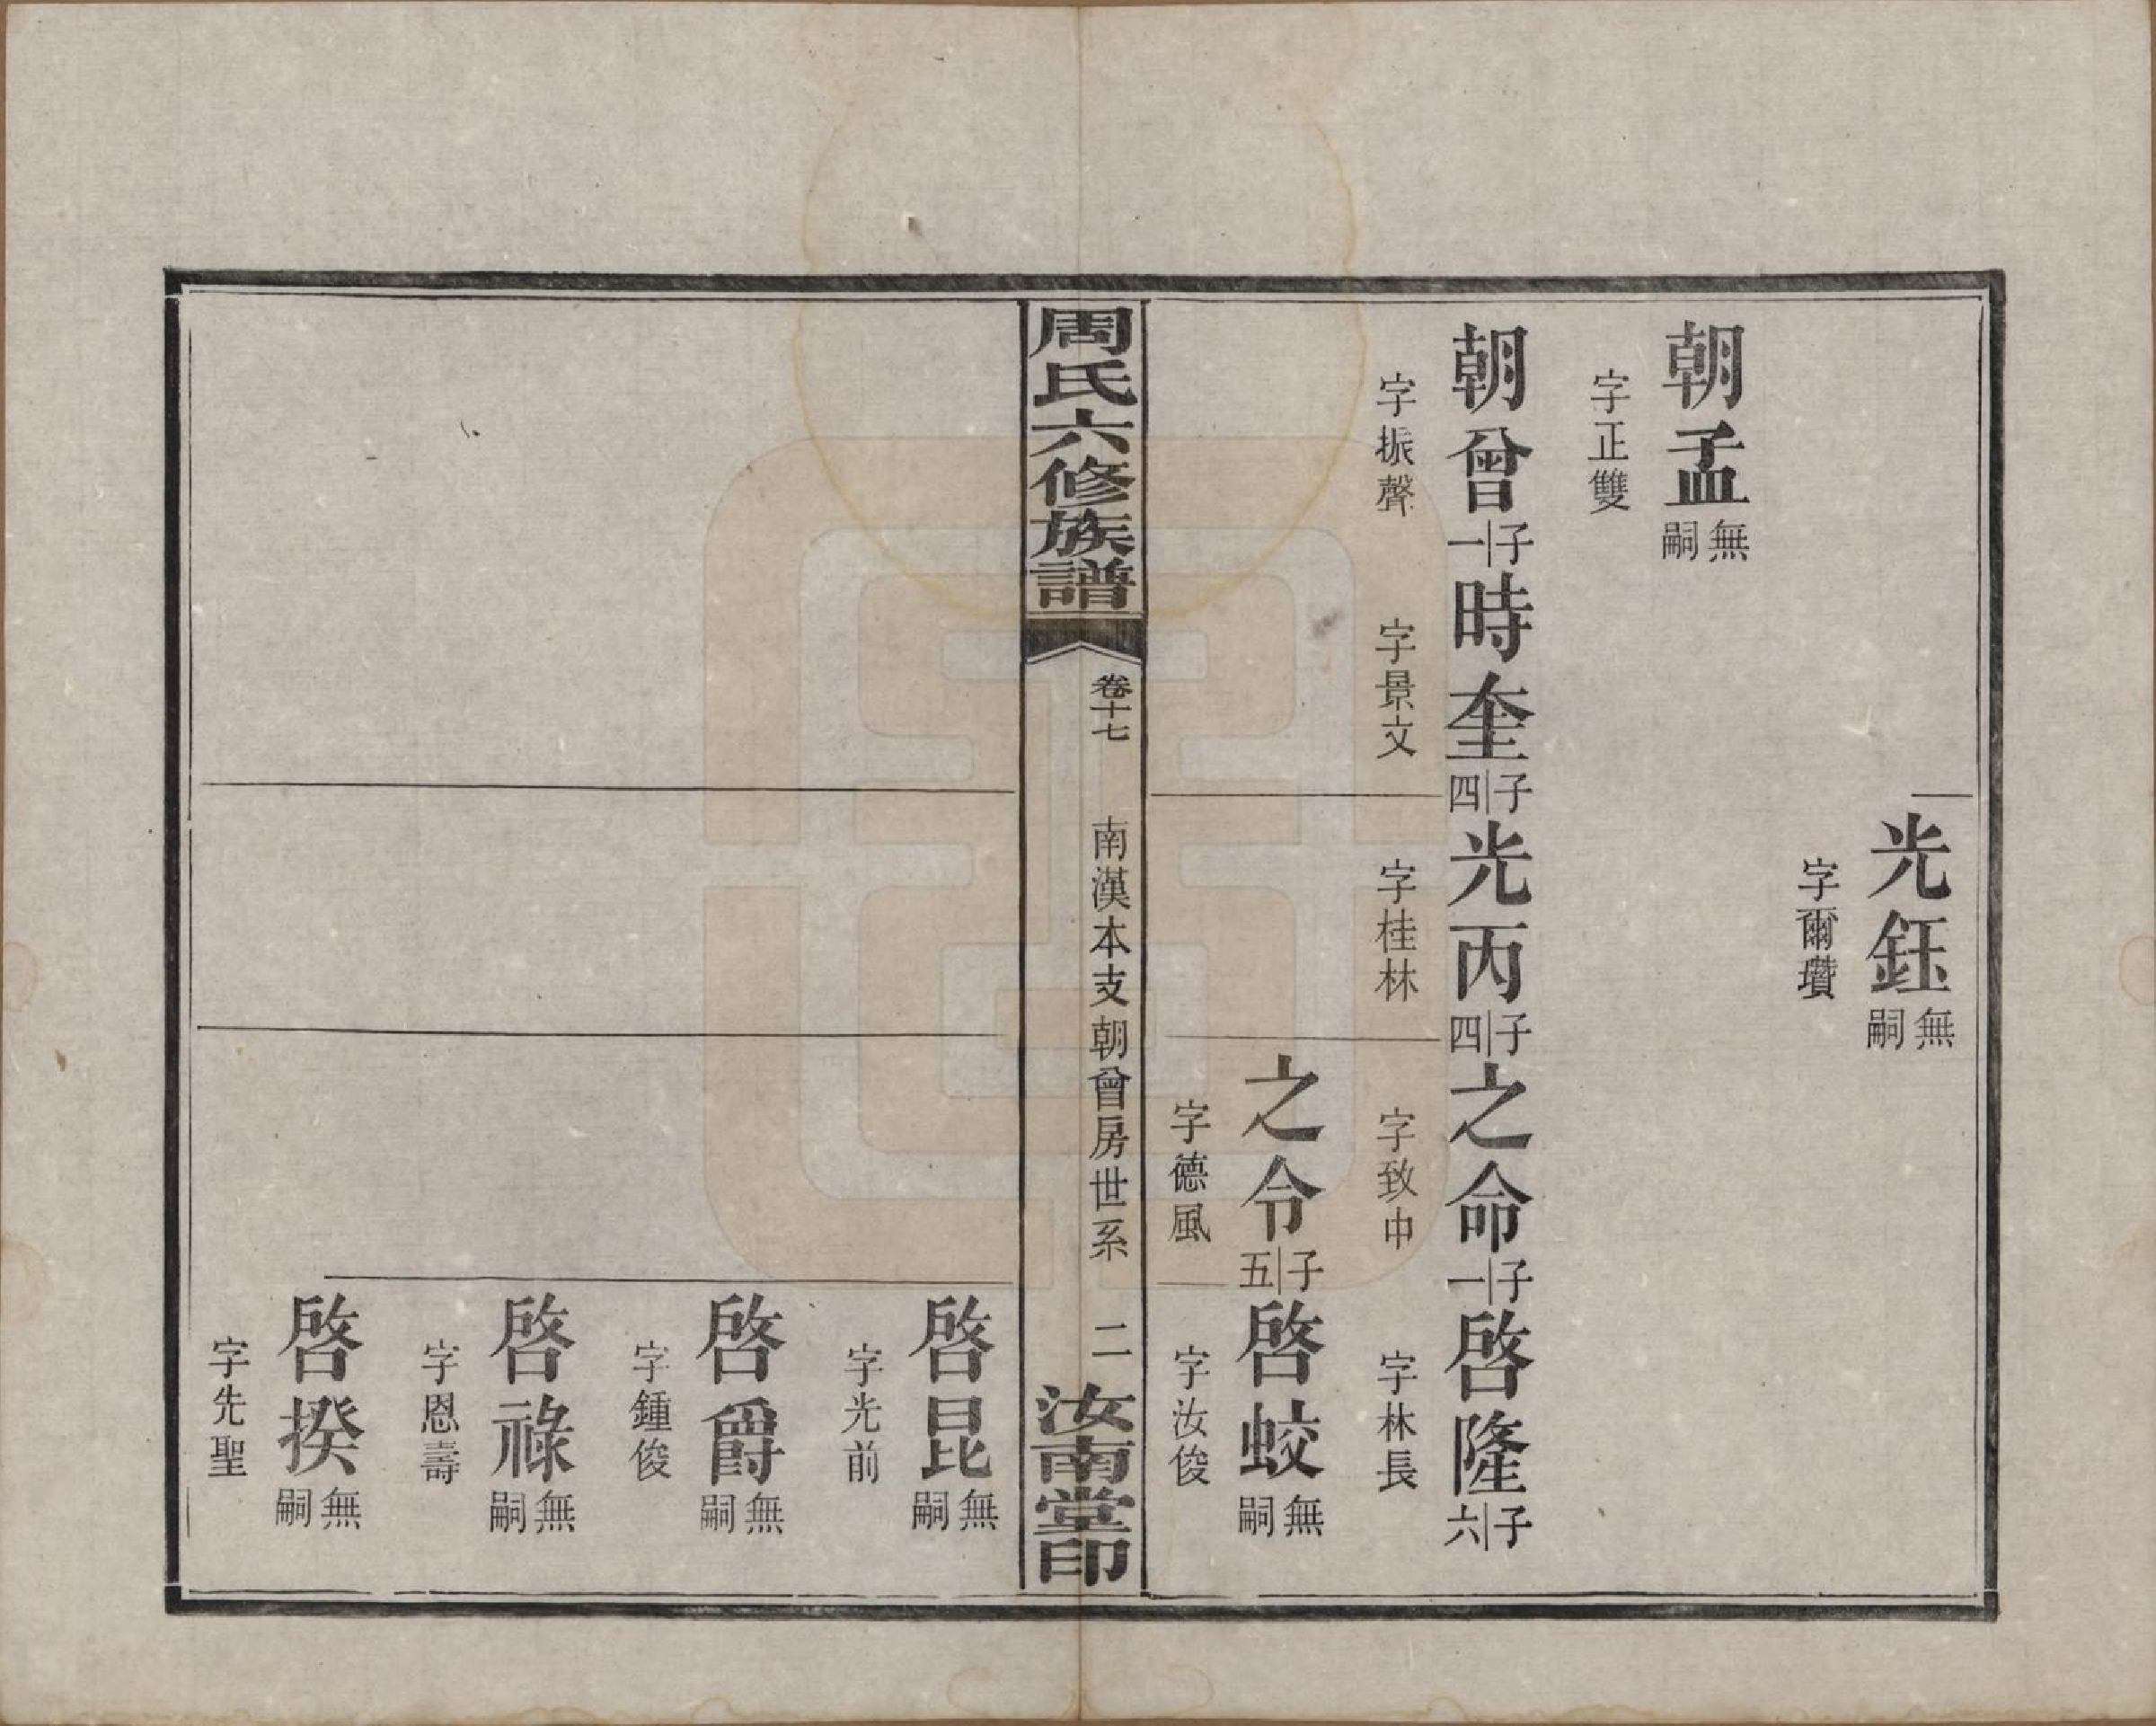 光鈺無嗣
字爾瓚
朝孟無嗣
字正雙
朝曾子一時奎子四光丙子四之命子一啓隆子六
字振聲 字景文 字桂林 字致中 字林長
之令子五啓蛟無嗣
字德風 字汝俊
周氏六修族譜 卷十七 南漢本支朝曾房世系 二 汝南堂印
啓昆無嗣
字光前
啓爵無嗣
字鍾俊
啓祿無嗣
字恩壽
啓揆無嗣
字先聖